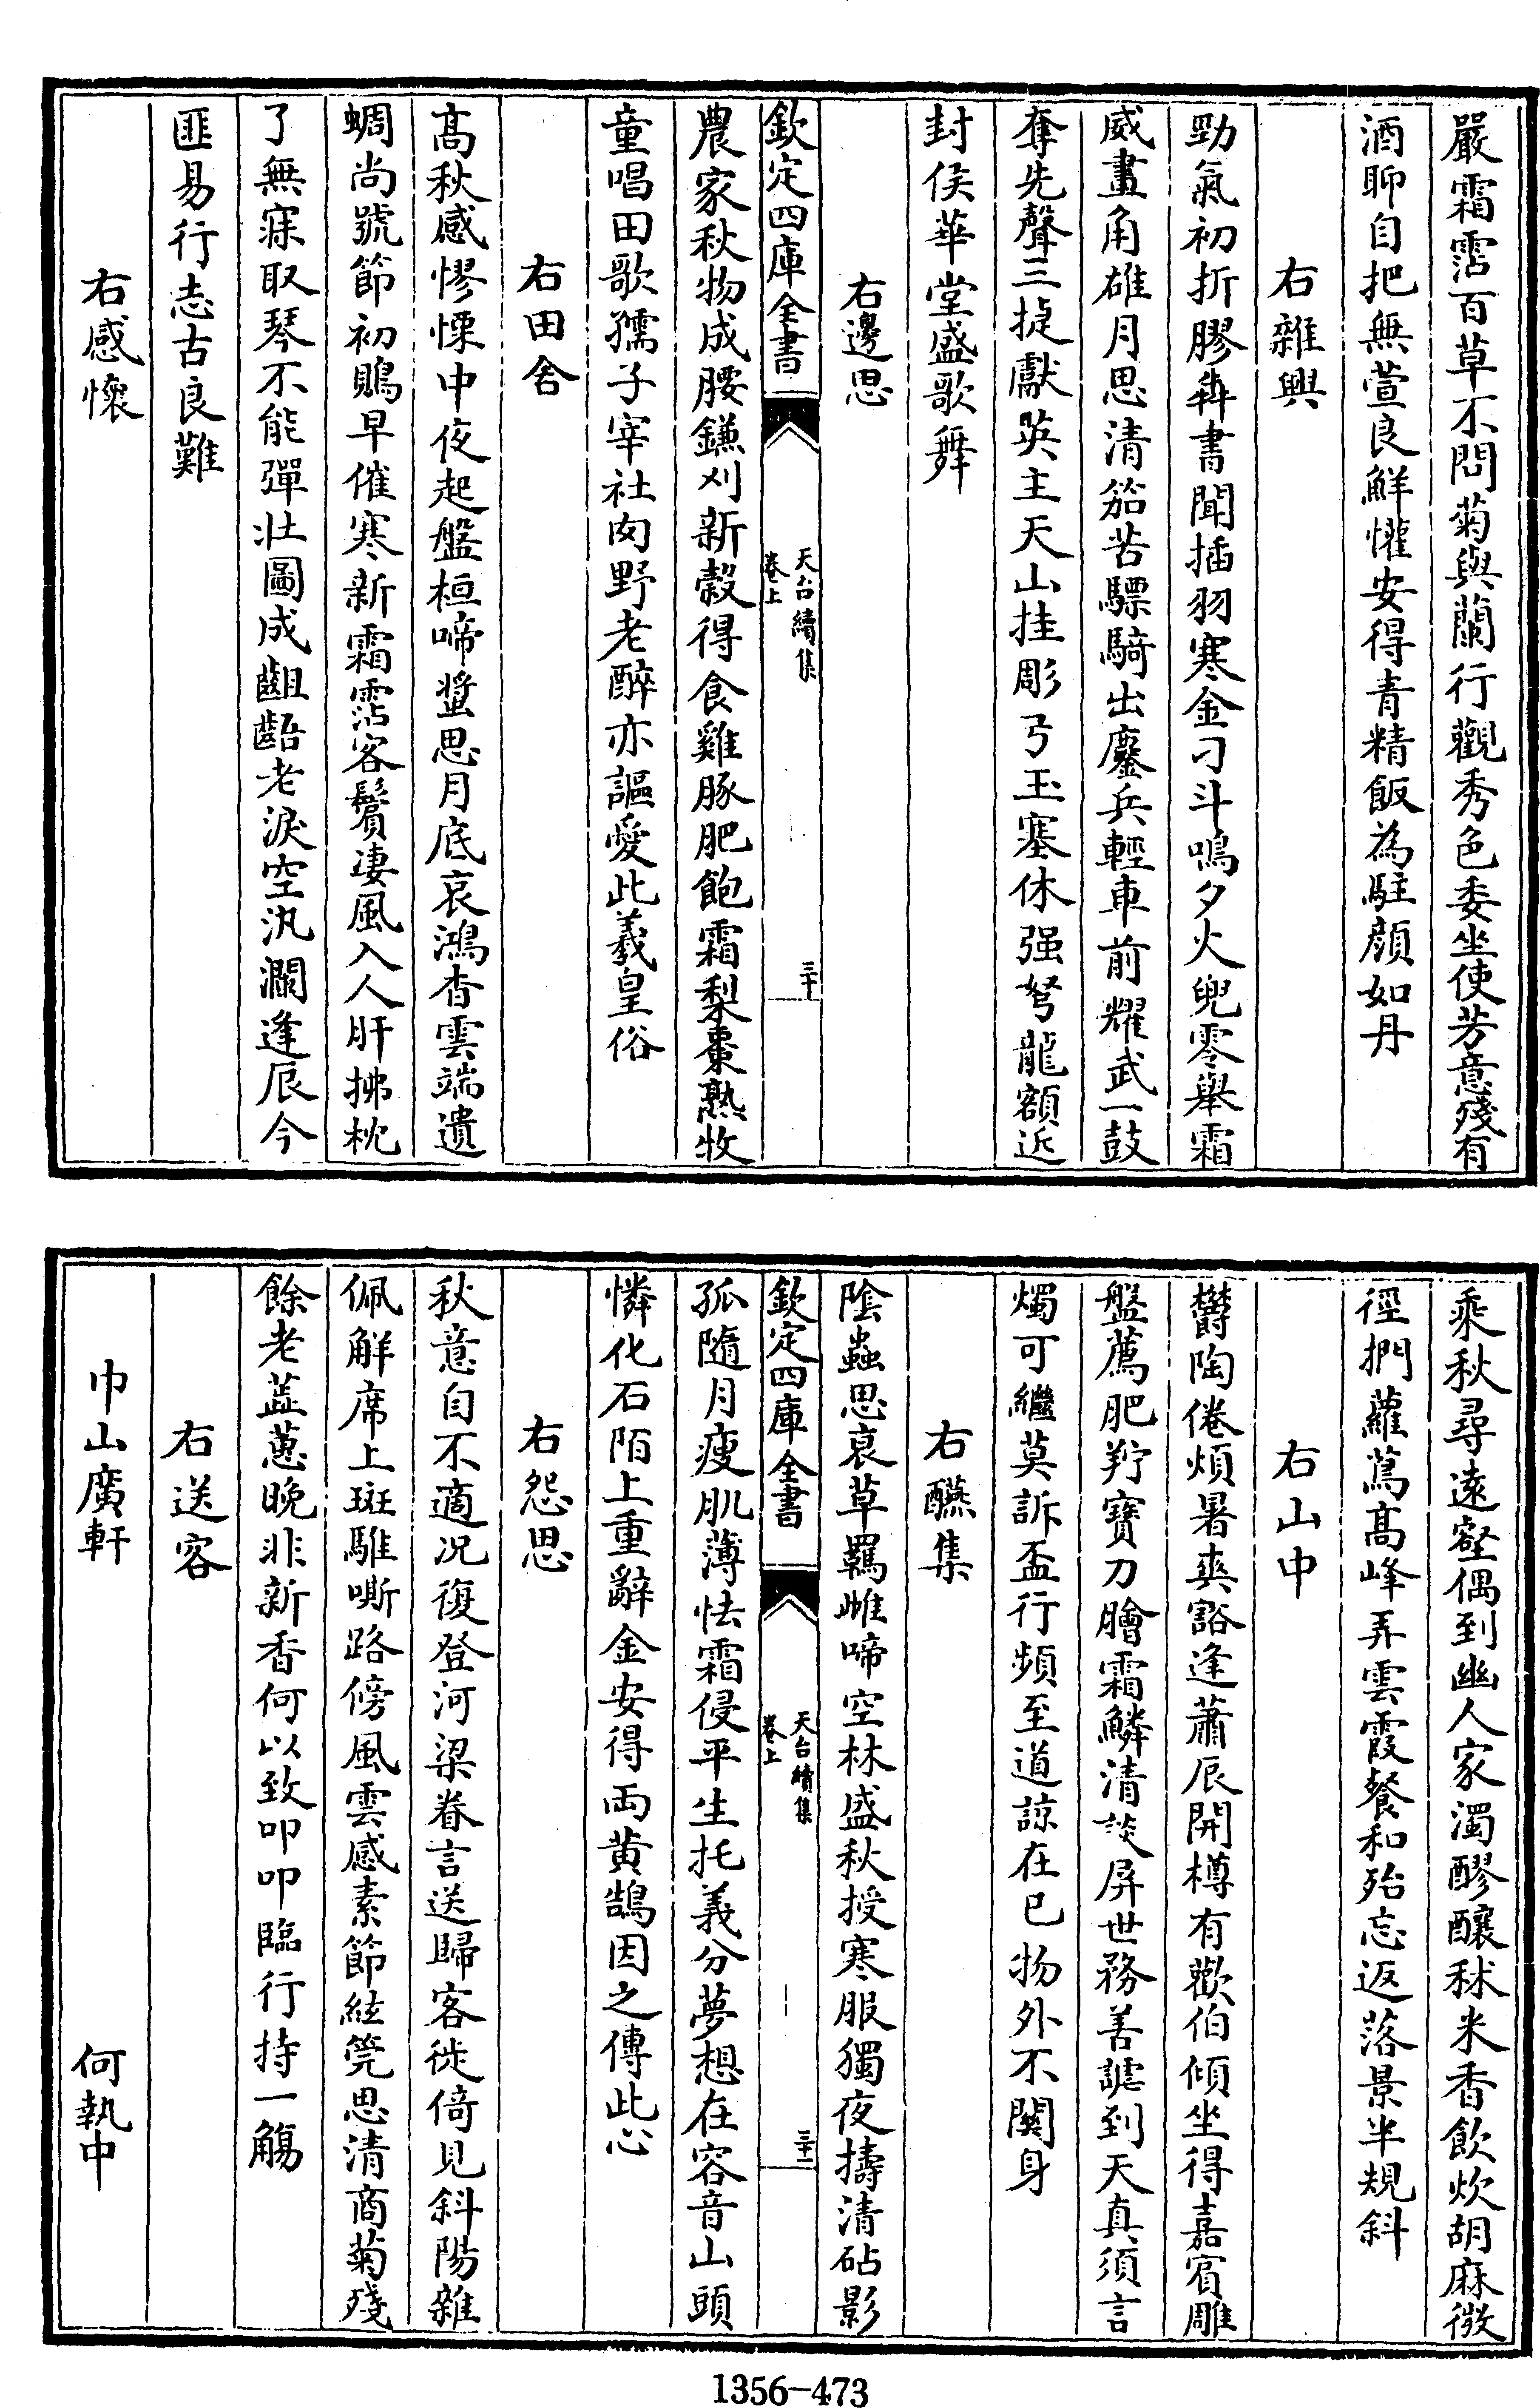 嚴霜霑百草不問菊與蘭行觀秀色委坐使芳意殘有
酒聊自把無萱良鮮懽安得青精飯為駐顔如丹
右雜興
勁氣初折膠犇書聞插羽寒金刁斗鳴夕火兜零舉霜
威畫角雄月思清笳苦驃騎出鏖兵輕車前耀武一鼓
奪先聲三㨗獻英主天山挂彫弓玉塞休强弩龍額近
封侯華堂盛歌舞
右邊思
欽定四庫全書
天台續集
卷上
三十
農家秋物成腰鎌刈新榖得食雞豚肥飽霜梨棗熟牧
童唱田歌孺子宰社肉野老醉亦謳愛此羲皇俗
右田舍
髙秋感憀慄中夜起盤桓啼螿思月底哀鴻杳雲端遺
蜩尚號節初鵙早催寒新霜霑客鬢凄風入人肝拂枕
了無寐取琴不能彈壯圖成齟齬老淚空汍瀾逢辰今
匪易行志古良難
右感懷
乘秋尋遠壑偶到幽人家濁醪釀秫米香飲炊胡麻微
徑捫蘿蔦髙峰弄雲霞餐和殆忘返落景半規斜
右山中
欝陶倦煩暑爽豁逢蕭辰開樽有歡伯傾坐得嘉賔雕
盤薦肥羜寶刀膾霜鱗清談屏世務善謔到天真須言
燭可繼莫訴盃行頻至道諒在已物外不闗身
右醼集
陰蟲思哀草羈雌啼空林盛秋授寒服獨夜擣清砧影
欽定四庫全書
天台續集
卷上
三十一
孤隨月瘦肌薄怯霜侵平生托義分夢想在容音山頭
憐化石陌上重辭金安得両黄鵠因之傳此心
右怨思
秋意自不適况復登河梁眷言送歸客徙倚見斜陽雜
佩解席上斑騅嘶路傍風雲感素節絃筦思清商菊殘
餘老蘂蔥晚非新香何以致叩叩臨行持一觴
右送客
巾山廣軒
何執中
1356-473